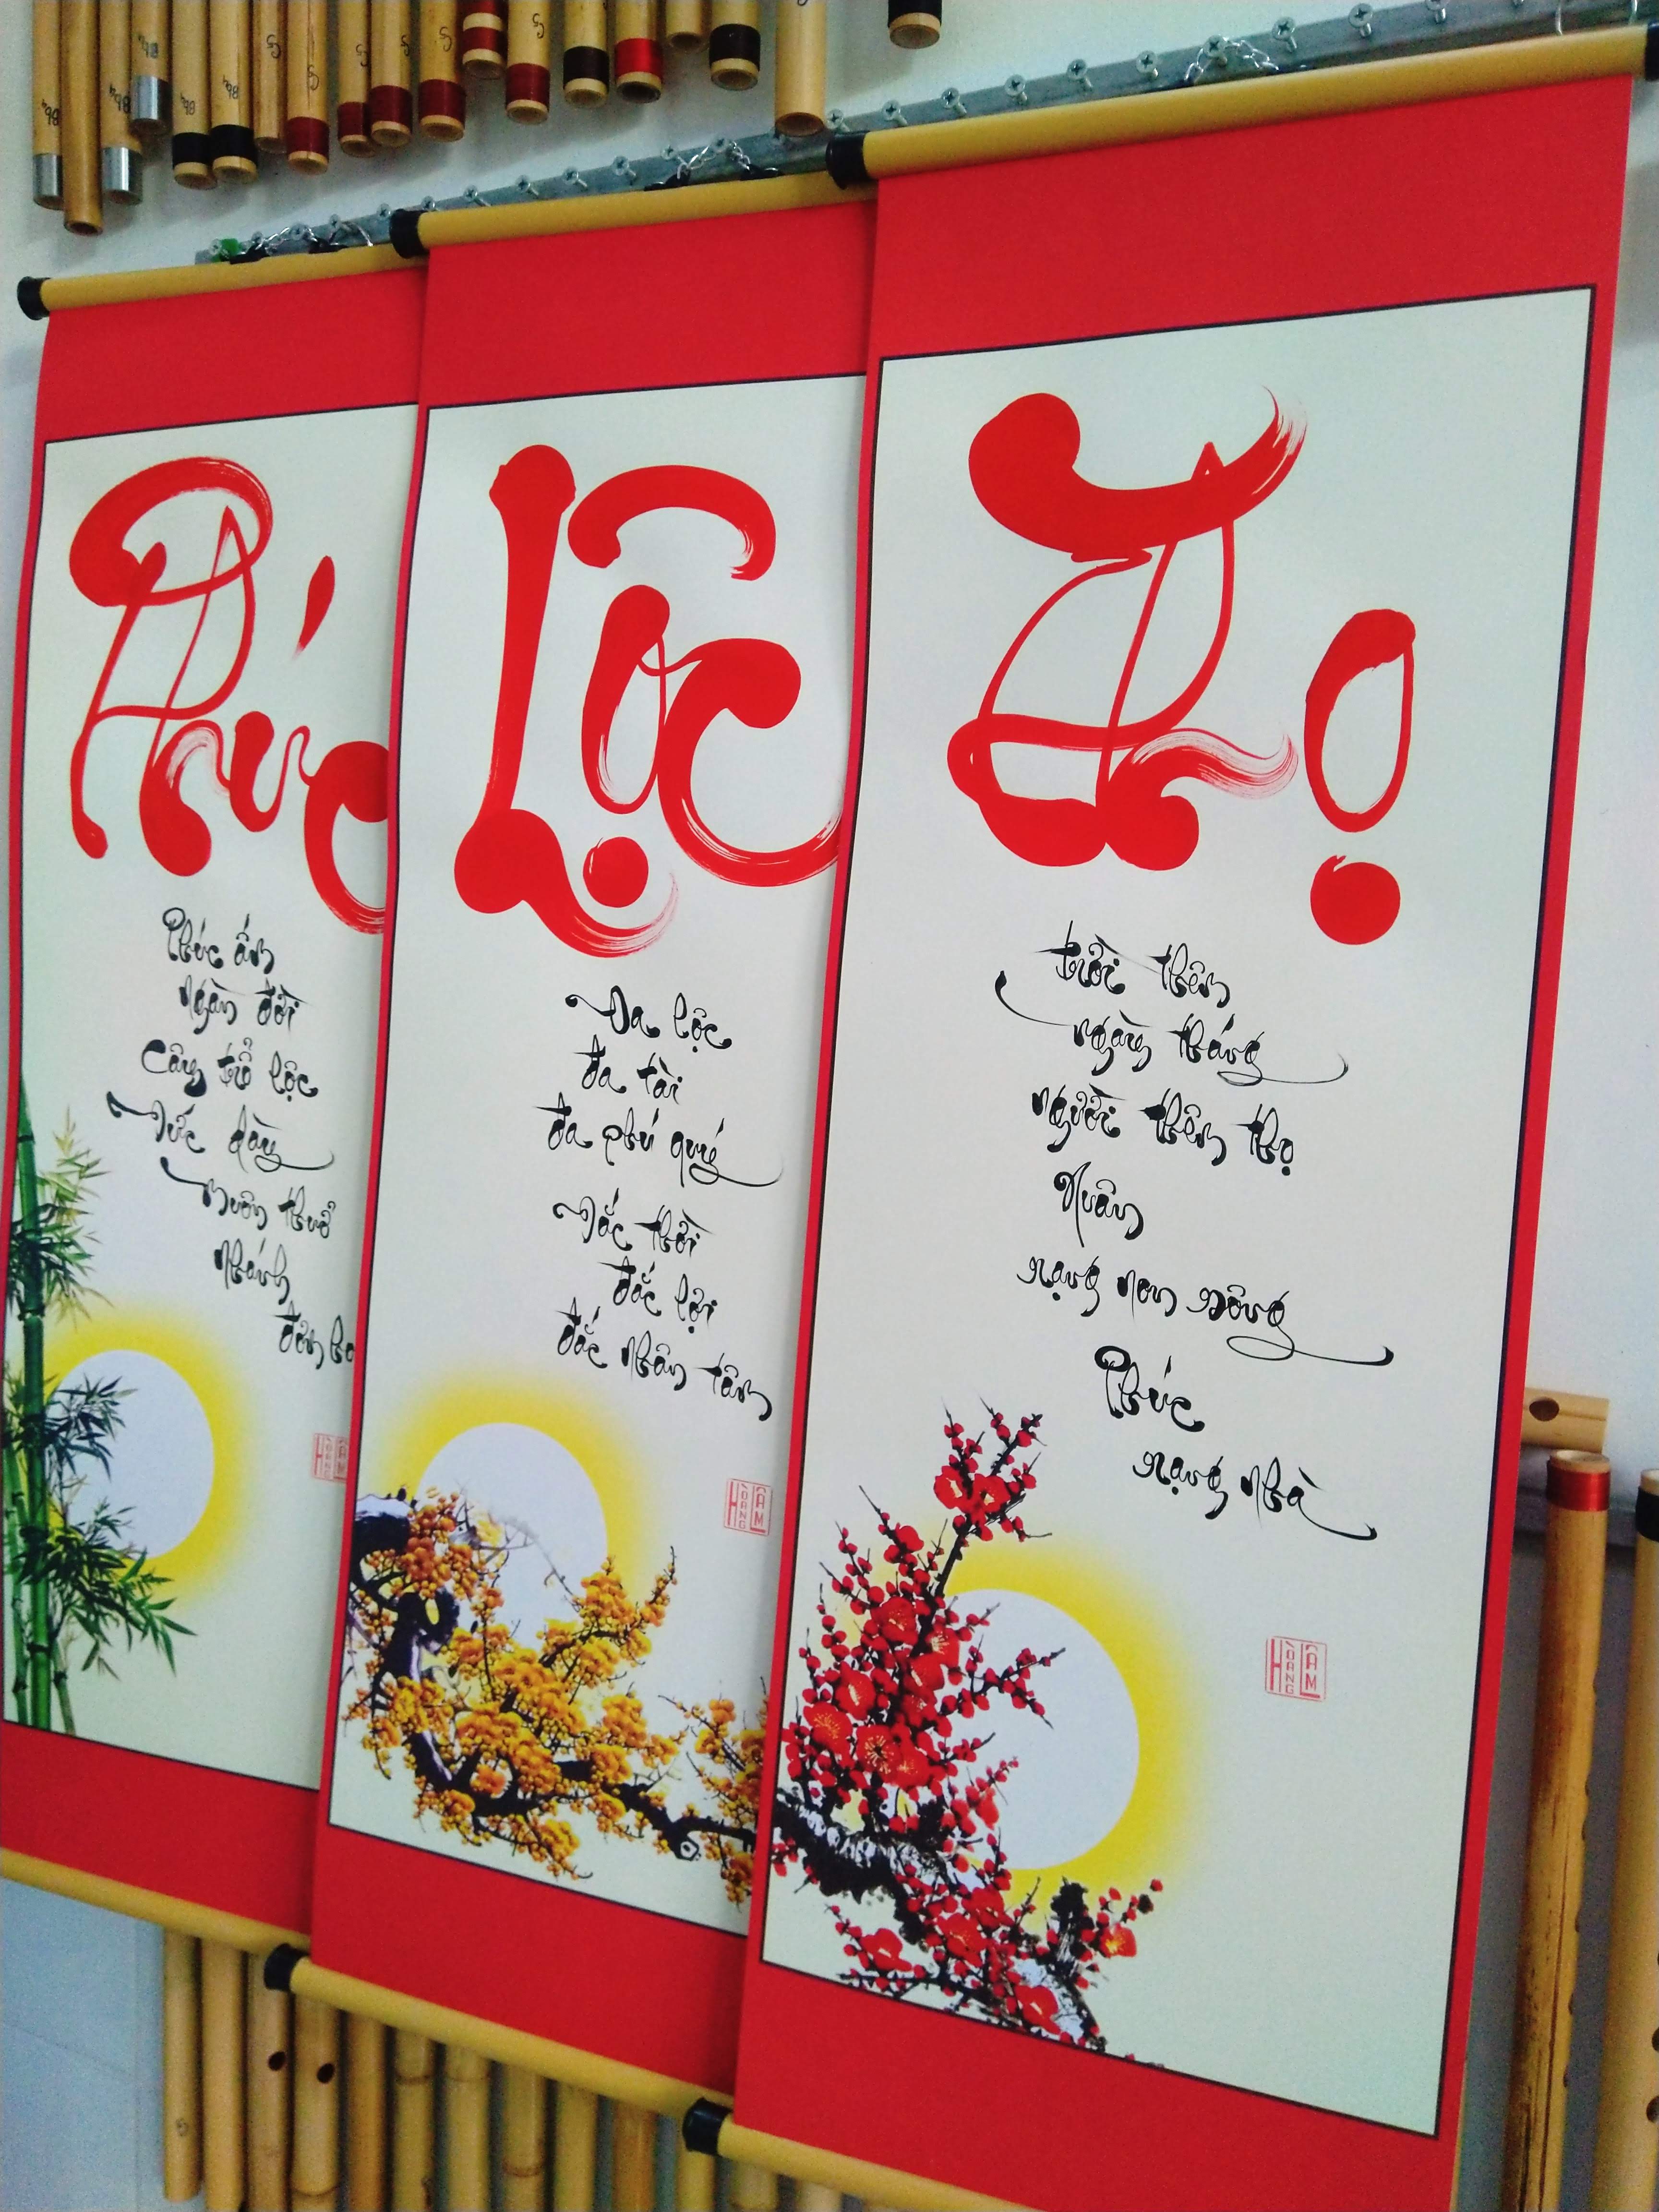 Phúc
Phúc ấm
ngàn đời
Cây trổ lộc
Đức dày
muôn thuở
Nhánh
đơm bo
HOÀNG
Lộc
Đa lộc
đa tài
đa phú quý
Đắc thời
đắc lợi
đắc nhân tâm
HOÀNG
ÂM
Thọ
trời thêm
ngày tháng
người thêm thọ
Xuân
rạng non sông
Phúc
rạng nhà
HOÀNG
ÂM